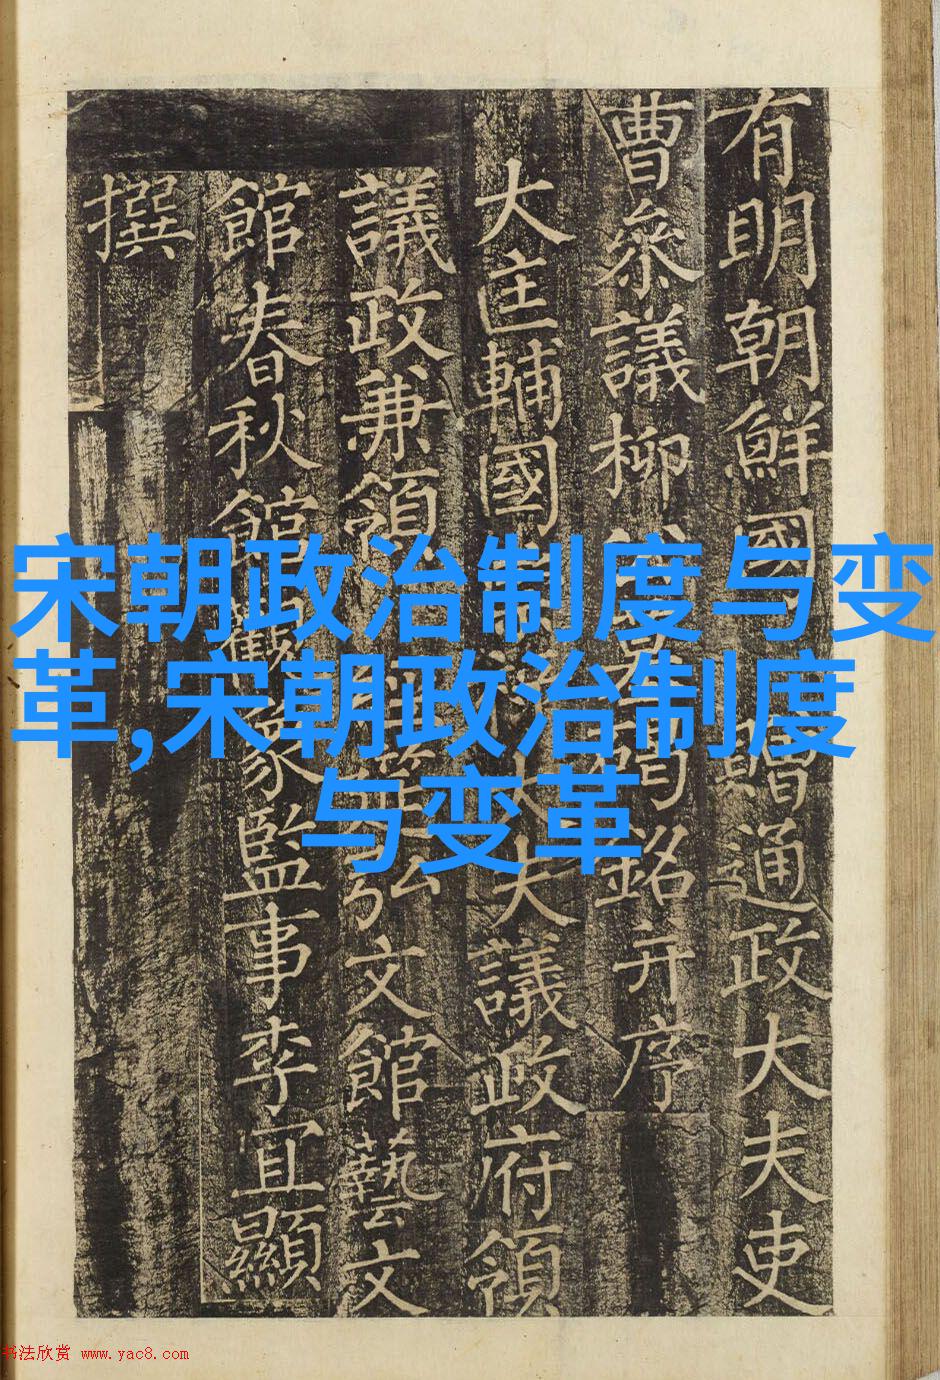 有明朝鮮國贈通政大夫吏
曹參議柳銘并序
大匡輔國大夫議政府領
議政兼領弘文館藝文
館春秋館觀象監事李宜顯
撰
宋朝政治制度与变
革,宋朝政治制度
与变革
书法欣赏 www.yac8.com